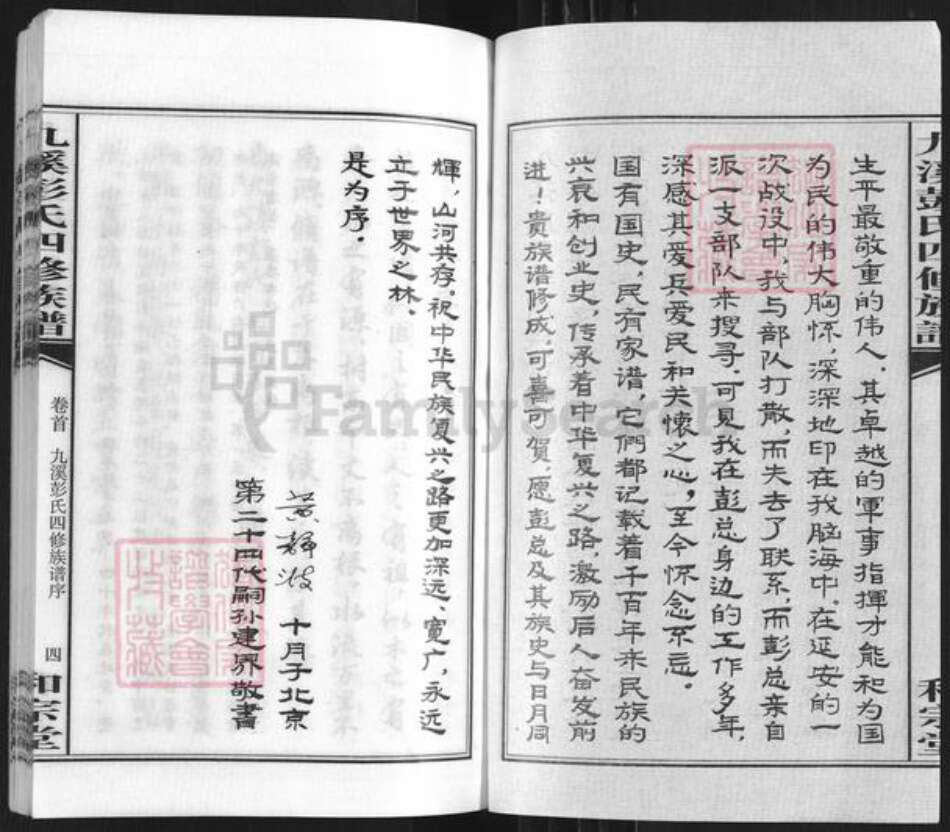 九溪彭氏四修族譜
和宗堂
生平最敬重的伟人。其卓越的軍事指揮才能和为国
为民的伟大胸怀，深深地印在我脑海中。在延安的一
次战役中，我与部队打散，而失去了联系，而彭总亲自
派一支部队来搜寻。可见我在彭总身边的工作多年，
深感其爱兵爱民和关懷之心，至今怀念不忘。
国有国史，民有家谱，它们都记载着千百年来民族的
兴衰和创业史，传承着中华复兴之路，激励后人奋发前
进！贵族谱修成，可喜可贺，愿彭总及其族史与日月同
輝，山河共存。祝中华民族复兴之路更加深远、宽广，永远
立于世界之林。
是为序。
十月于北京
第二十四代嗣孙建界敬書
九溪彭氏四修族譜
卷首 九溪彭氏四修族谱序
四
和宗堂
FamilySearch